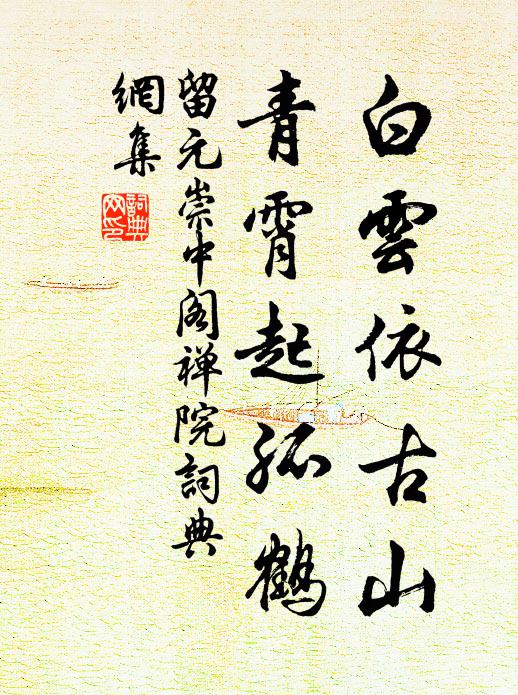 白雲依古山
青霄起孤鶴
留元崇中阁禅院詞典
網集
詞典
网印